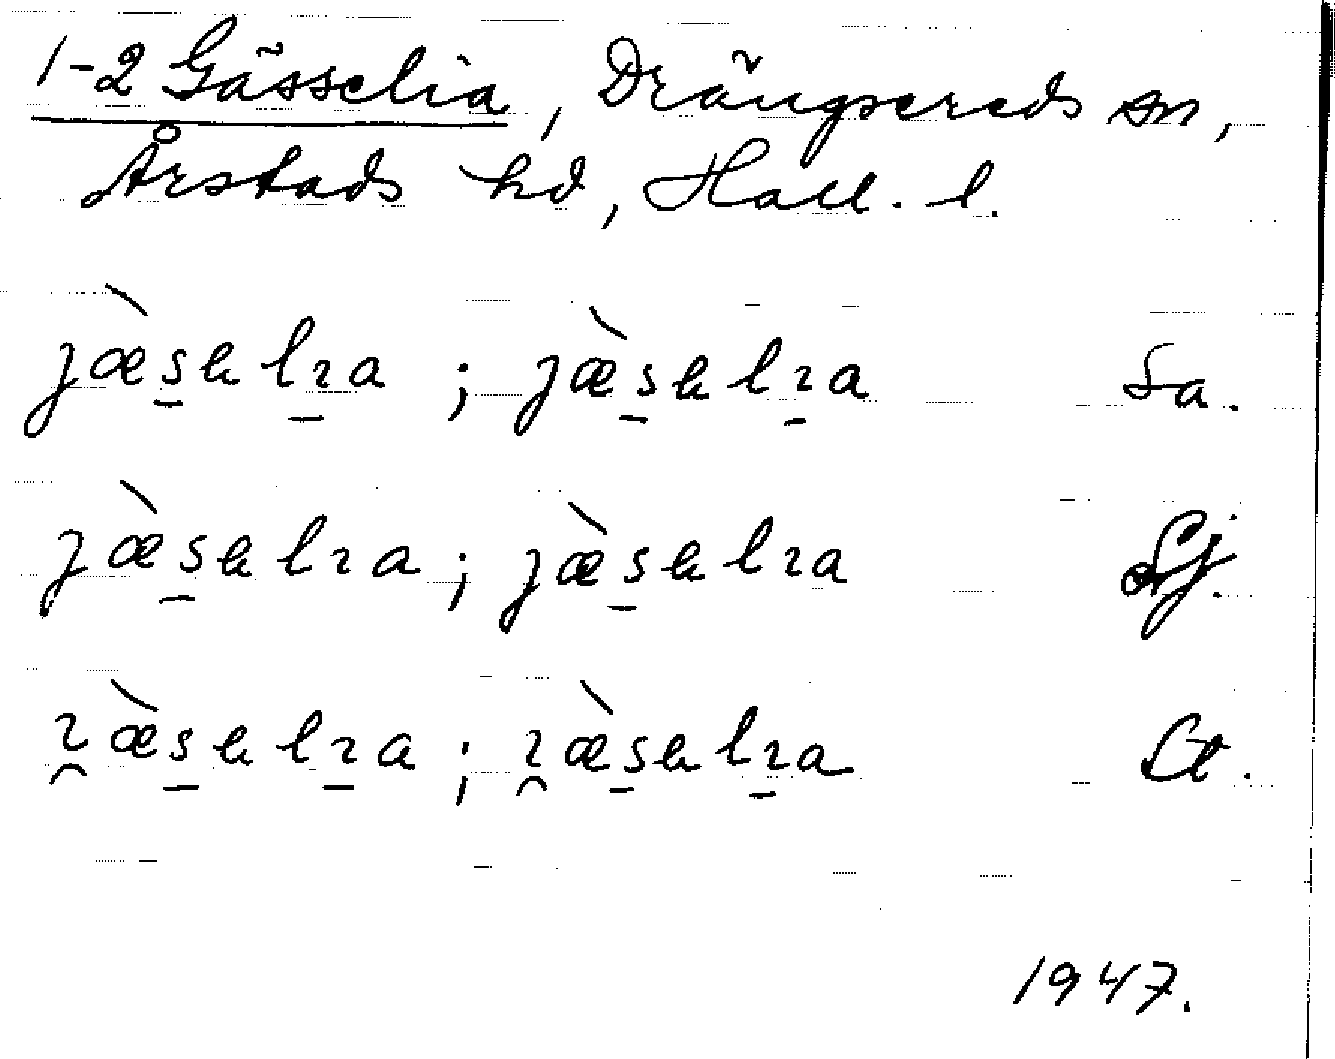 1-2 Gässelia, Drängsereds sn,
Årstads hd, Hall. l.
jæ̀s̠əlɿ̠a ; jæ̀s̠əlɿ̠a Sa.
jæ̀s̠əlɿa ; jæ̀s̠əlɿa Sj.
ɿ̯æ̀s̠əlɿ̠a ; ɿ̯æ̀s̠əlɿ̠a
1947.